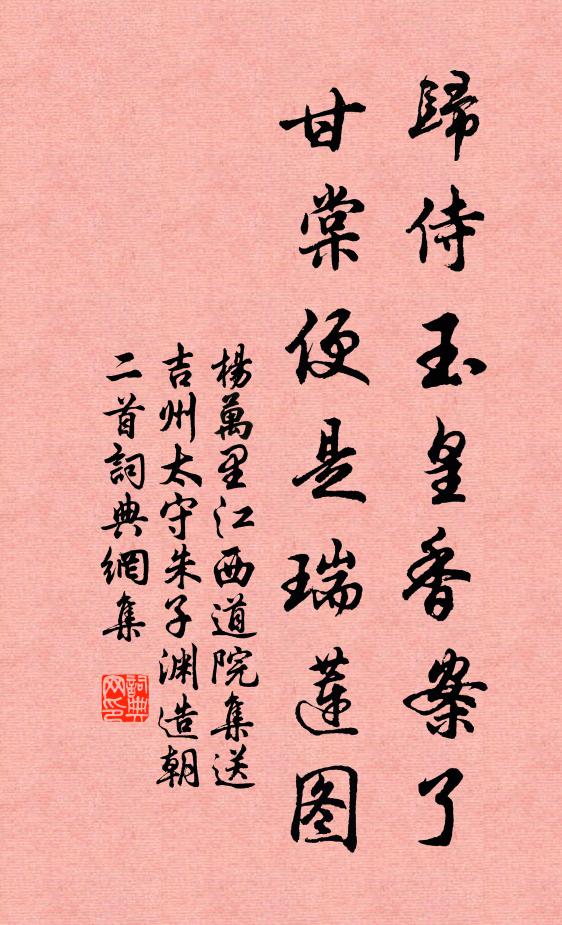 歸侍玉皇香案了
甘棠便是瑞蓮图
楊萬里江西道院集送
吉州太守朱子渊造朝
二首詞典網集
詞典
网印